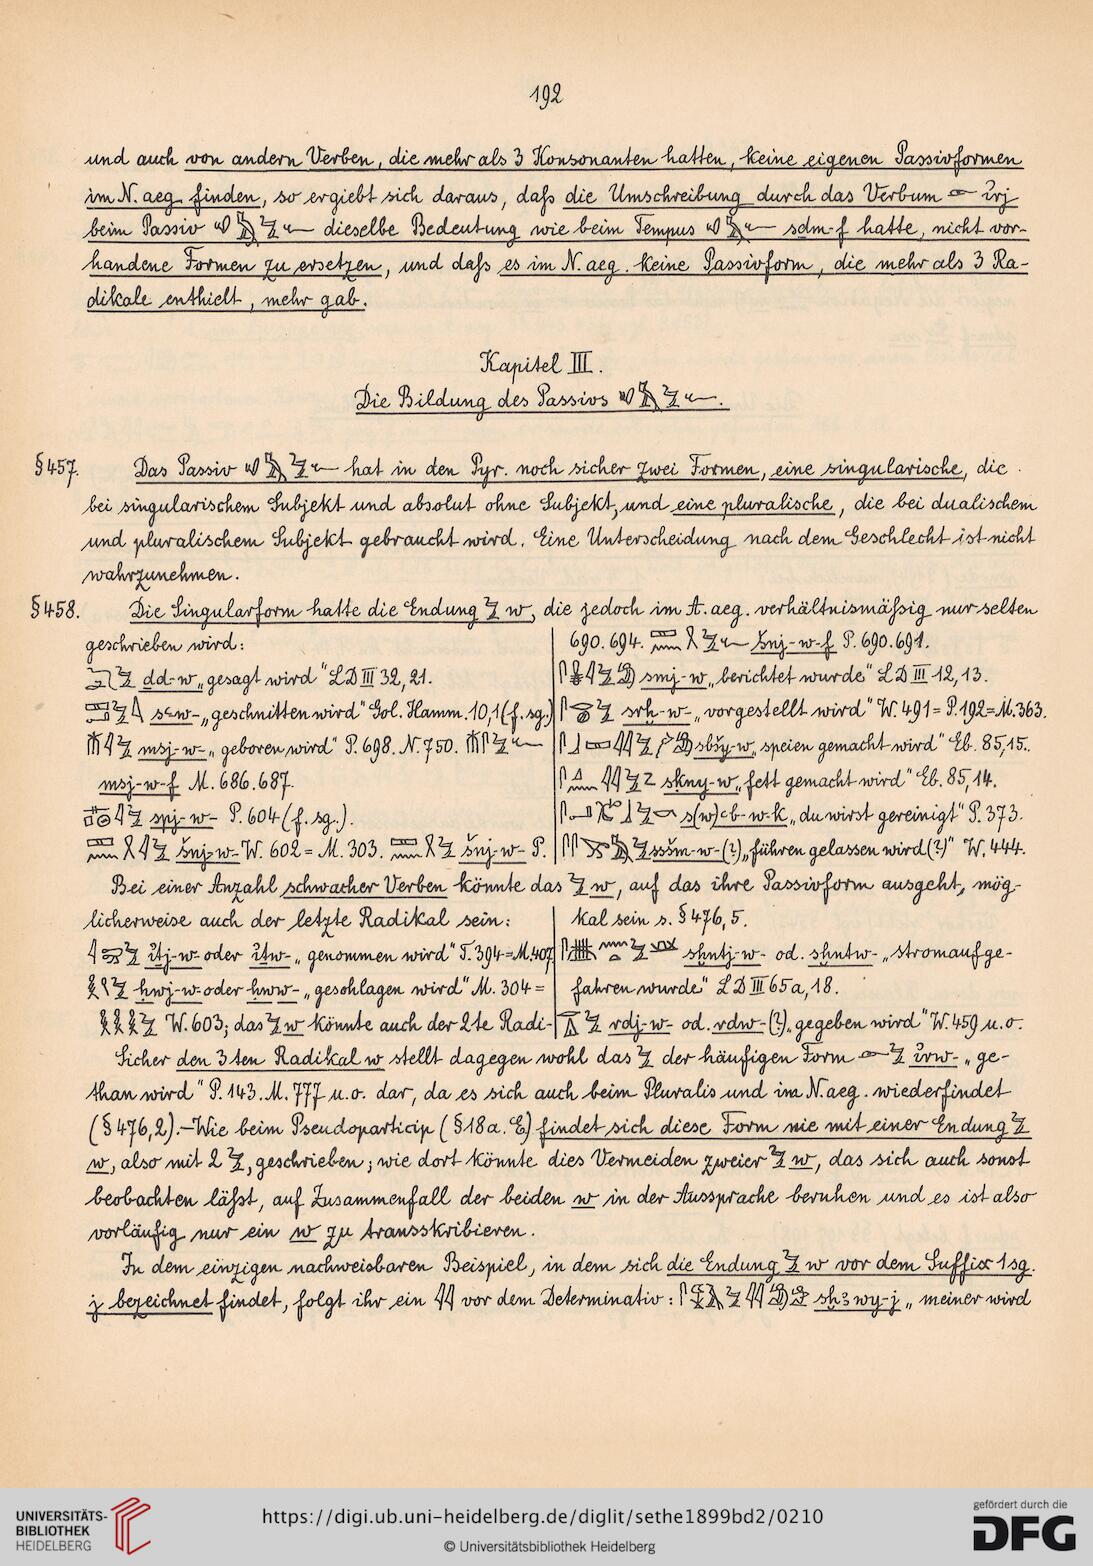 192
und auch von andern Verben, die mehr als 3 Konsonanten hatten, keine eigenen Passivformen
im N. aeg. finden, so ergiebt sich daraus, daſs die Umschreibung durch das Verbum ı͗rj
beim Passiv dieselbe Bedeutung wie beim Tempus sdm-f hatte, nicht vor-
handene Formen zu ersetzen, und daſs es im N. aeg. keine Passivform, die mehr als 3 Ra-
dikale enthielt, mehr gab.
Kapitel III.
Die Bildung des Passivs
§457. Das Passiv hat in den Pyr. noch sicher zwei Formen, eine singularische, die
bei singularischem Subjekt und absolut ohne Subjekt, und eine pluralische, die bei dualischem
und pluralischem Subjekt gebraucht wird. Eine Unterscheidung nach dem Geschlecht ist nicht
wahrzunehmen.
§458. Die Singularform hatte die Endung w, die jedoch im A. aeg. verhältnismäſsig nur selten
geschrieben wird:
dd-w „gesagt wird“ LD III 32, 21.
„geschnitten wird“ Gol. Hamm. 10,1 (f. sg.)
msj-w- „geboren wird“ P. 698. N. 750.
msj-w-f M. 686. 687.
spj-w- P. 604 (f. sg.).
šnj-w- W. 602 = M. 303. šnj-w- P.
690. 694. šnj-w-f P. 690. 691.
smj-w „berichtet wurde“ LD III 12, 13.
srḫ-w- „vorgestellt wird“ W. 491 = P. 192 = M. 363.
sbšy-w „speien gemacht wird“ Eb. 85, 15.
skny-w „fett gemacht wird“ Eb. 85, 14.
s(w)ꜥb-w-k „du wirst gereinigt“ P. 373.
sššm-w-(?) „führen gelassen wird (?)“ W. 444.
Bei einer Anzahl schwacher Verben könnte das w, auf das ihre Passivform ausgeht, mög-
licherweise auch der letzte Radikal sein:
ı͗tj-w- oder ı͗tw- „genommen wird“ T. 394 = M. 407
ḥwj-w- oder ḥww- „geschlagen wird“ M. 304 =
W. 603; das w könnte auch der 2te Radi-
kal sein s. §476, 5.
sḫntj-w- od. sḫntw- „stromaufge-
fahren wurde“ LD III 65a, 18.
rdj-w- od. rdw- (?) „gegeben wird“ W. 459 u. o.
Sicher den 3ten Radikal w stellt dagegen wohl das der häufigen Form ı͗rw- „ge-
than wird“ P. 143. M. 777 u. o. dar, da es sich auch beim Pluralis und im N. aeg. wiederfindet
(§476, 2). – Wie beim Pseudoparticip (§18a. E) findet sich diese Form nie mit einer Endung
w, also mit 2, geschrieben; wie dort könnte dies Vermeiden zweier w, das sich auch sonst
beobachten läſst, auf Zusammenfall der beiden w in der Aussprache beruhen und es ist also
vorläufig nur ein w zu transskribieren.
In dem einzigen nachweisbaren Beispiel, in dem sich die Endung w vor dem Suffix 1 sg.
j bezeichnet findet, folgt ihr ein vor dem Determinativ: sḫꜣwy-j „meiner wird
UNIVERSITÄTS-
BIBLIOTHEK
HEIDELBERG
https://digi.ub.uni-heidelberg.de/diglit/sethe1899bd2/0210
© Universitätsbibliothek Heidelberg
gefördert durch die
DFG